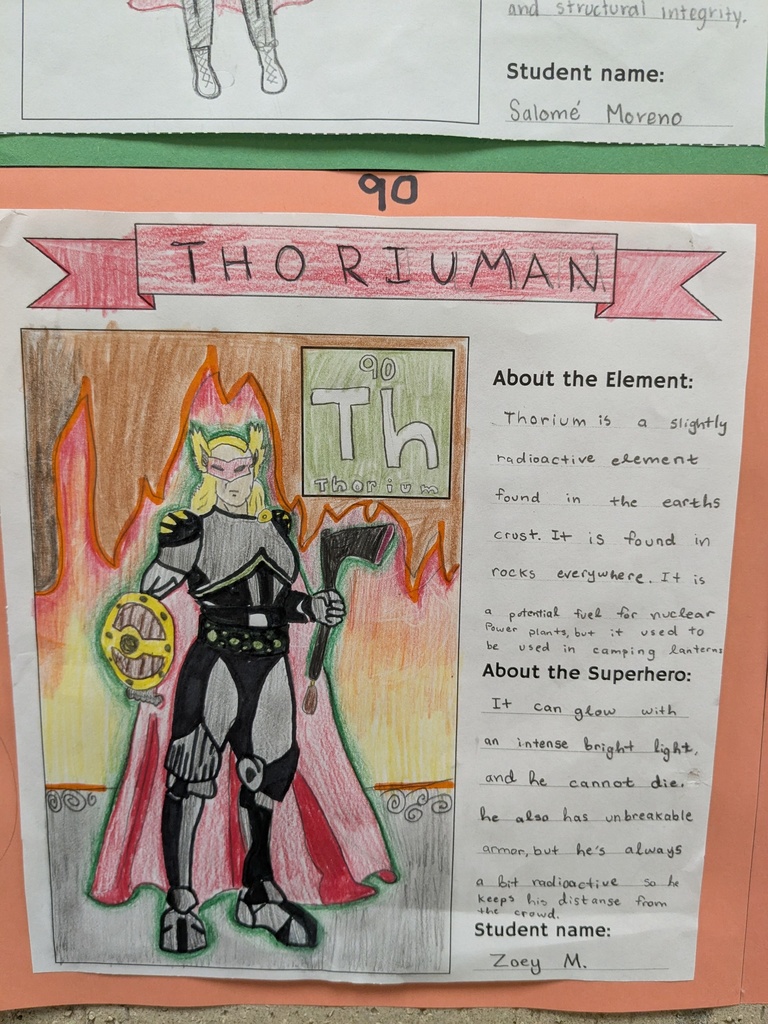 and structural integrity.
Student name:
Salomé Moreno
90
THORIUMAN
90
Th
Thorium
About the Element:
Thorium is a slightly
radioactive element
found in the earths
crust. It is found in
rocks everywhere. It is
a potential fuel for nuclear
Power plants, but it used to
be used in camping lanterns
About the Superhero:
It can glow with
an intense bright light,
and he cannot die.
he also has unbreakable
armor, but he's always
a bit radioactive so he
keeps his distanse from
the crowd.
Student name:
Zoey M.